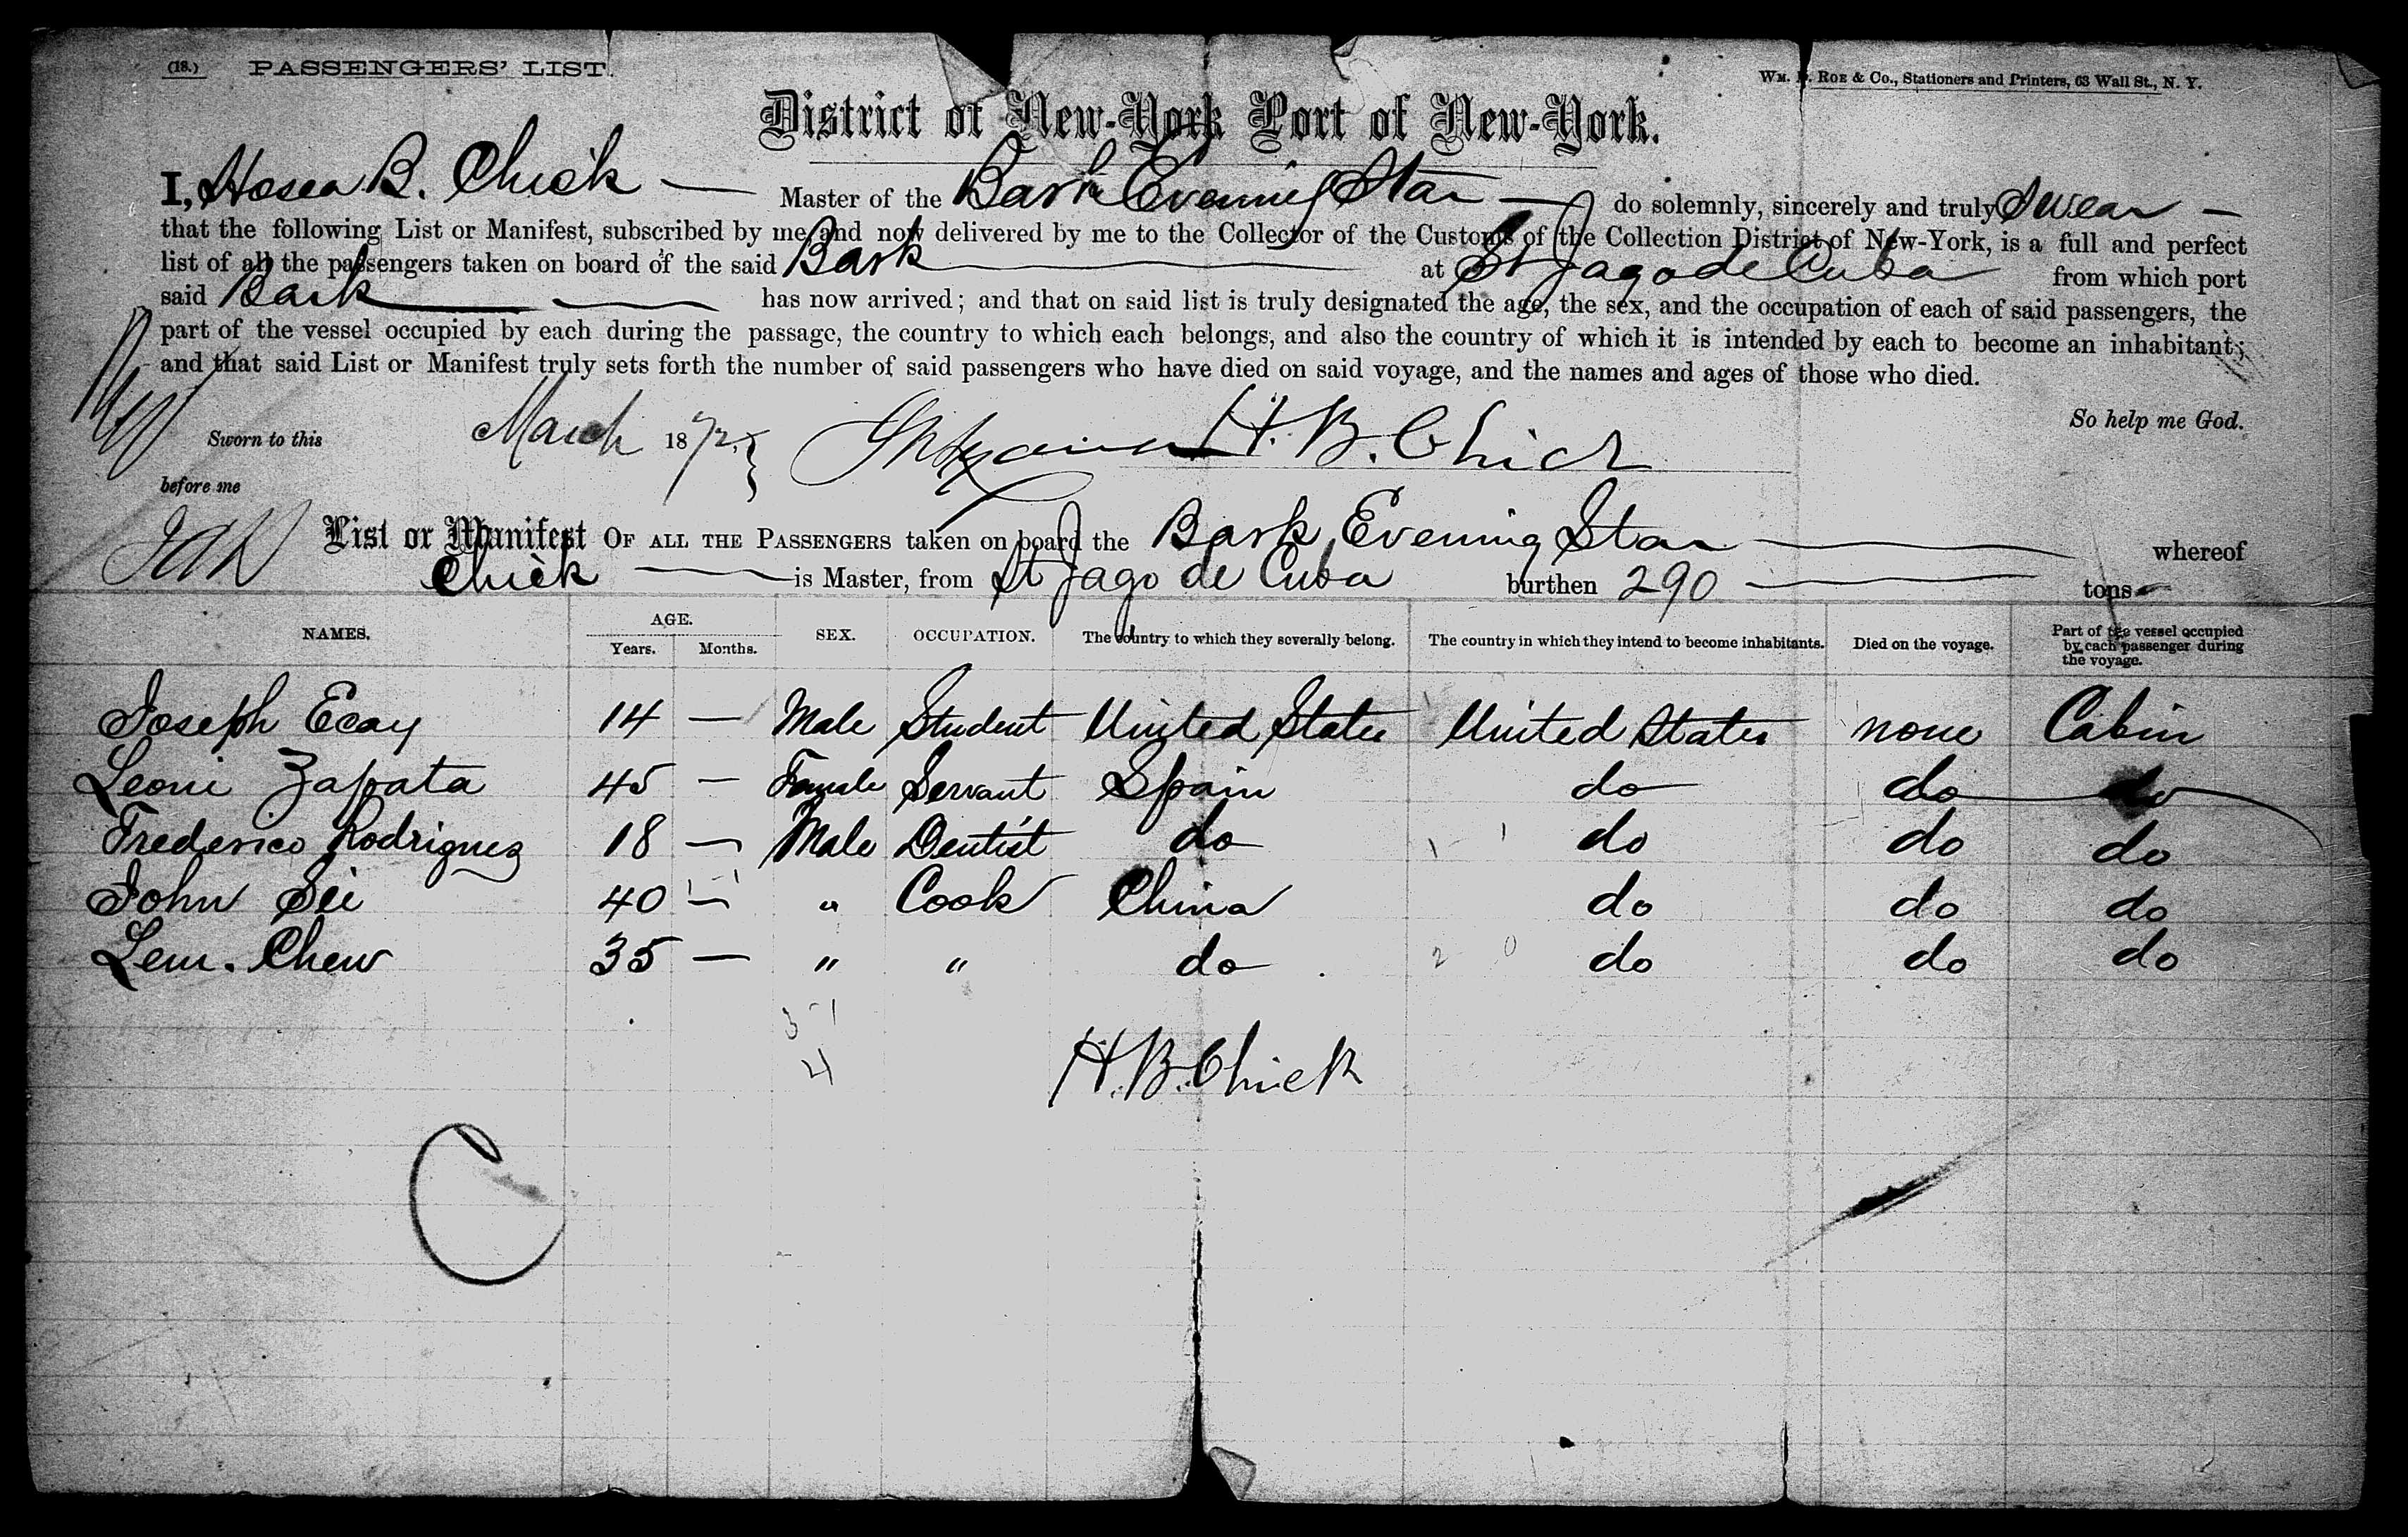 (18.) PASSENGERS' LIST.
WM. D. ROE & Co., Stationers and Printers, 63 Wall St., N. Y.
District of New-York Port of New-York.
I, Hosea B. Chick — Master of the Bark Evening Star — do solemnly, sincerely and truly Swear —
that the following List or Manifest, subscribed by me and now delivered by me to the Collector of the Customs of the Collection District of New-York, is a full and perfect
list of all the passengers taken on board of the said Bark — at St Jago de Cuba from which port
said Bark — has now arrived; and that on said list is truly designated the age, the sex, and the occupation of each of said passengers, the
part of the vessel occupied by each during the passage, the country to which each belongs, and also the country of which it is intended by each to become an inhabitant;
and that said List or Manifest truly sets forth the number of said passengers who have died on said voyage, and the names and ages of those who died.
So help me God.
Sworn to this March 1872. H. B. Chick
before me
List or Manifest OF ALL THE PASSENGERS taken on board the Bark Evening Star — whereof
Chick — is Master, from St Jago de Cuba burthen 290 — tons
NAMES. AGE. Years. Months. SEX. OCCUPATION. The country to which they severally belong. The country in which they intend to become inhabitants. Died on the voyage. Part of the vessel occupied by each passenger during the voyage.
Joseph Ecay 14 — Male Student United States United States none Cabin
Leoni Zapata 45 — Female Servant Spain do do do
Frederico Rodriguez 18 — Male Dentist do do do do
John Sii 40 — " Cook China do do do
Lem. Chew 35 — " " do do do do
2 0
3 1
4
H. B. Chick